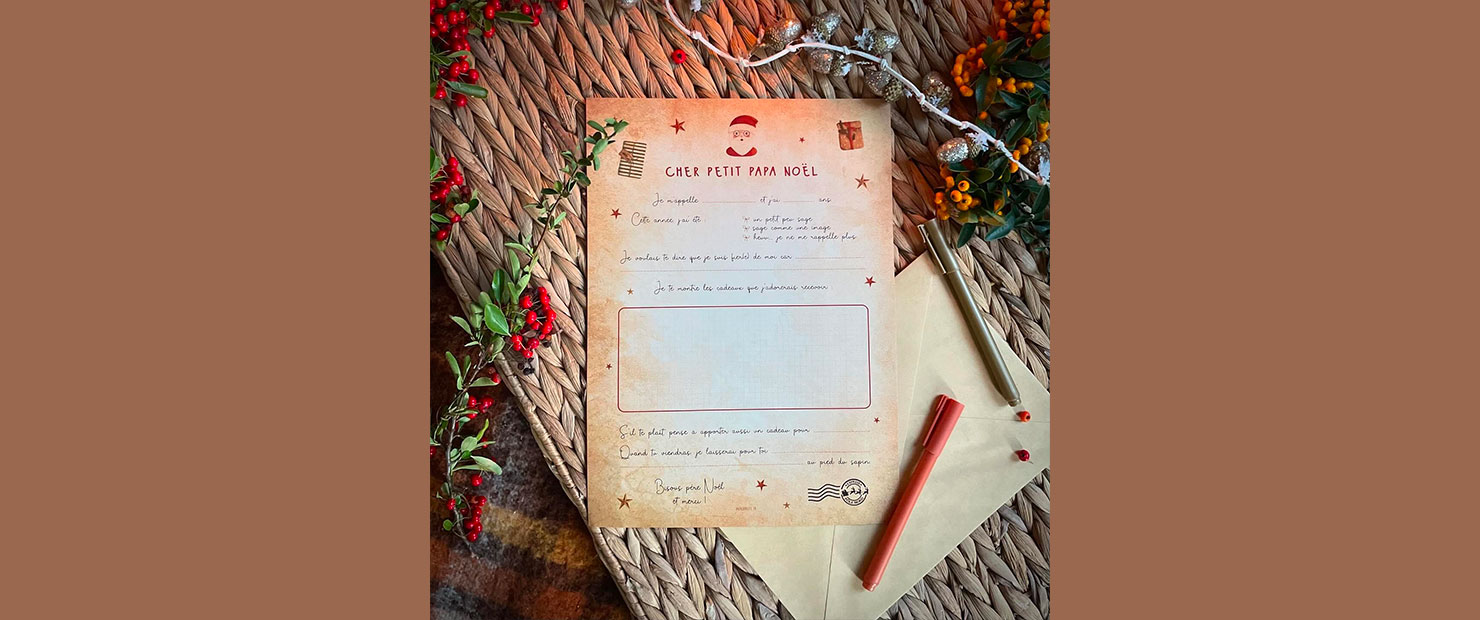 CHER PETIT PAPA NOËL
Je m'appelle et j'ai ans.
Cette année j'ai été : un petit peu sage
sage comme une image
heuu... je ne me rappelle plus
Je voulais te dire que je suis fier(e) de moi car
Je te montre les cadeaux que j'adorerais recevoir :
S'il te plaît pense a apporter aussi un cadeau pour
Quand tu viendras je laisserai pour toi
au pied du sapin.
Bisous père Noël
et merci !